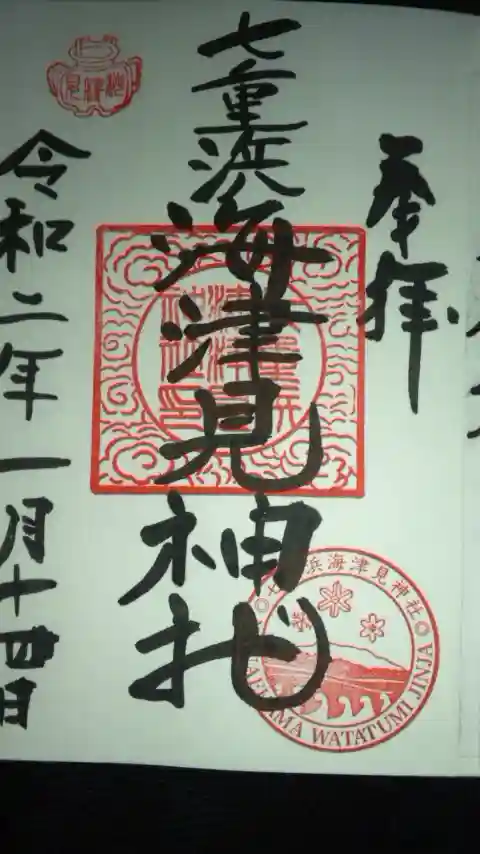 奉拝
七重浜
海津見神社
令和二年一月十四日
七重浜海津見神社
HAMA WATATUMI JINJA